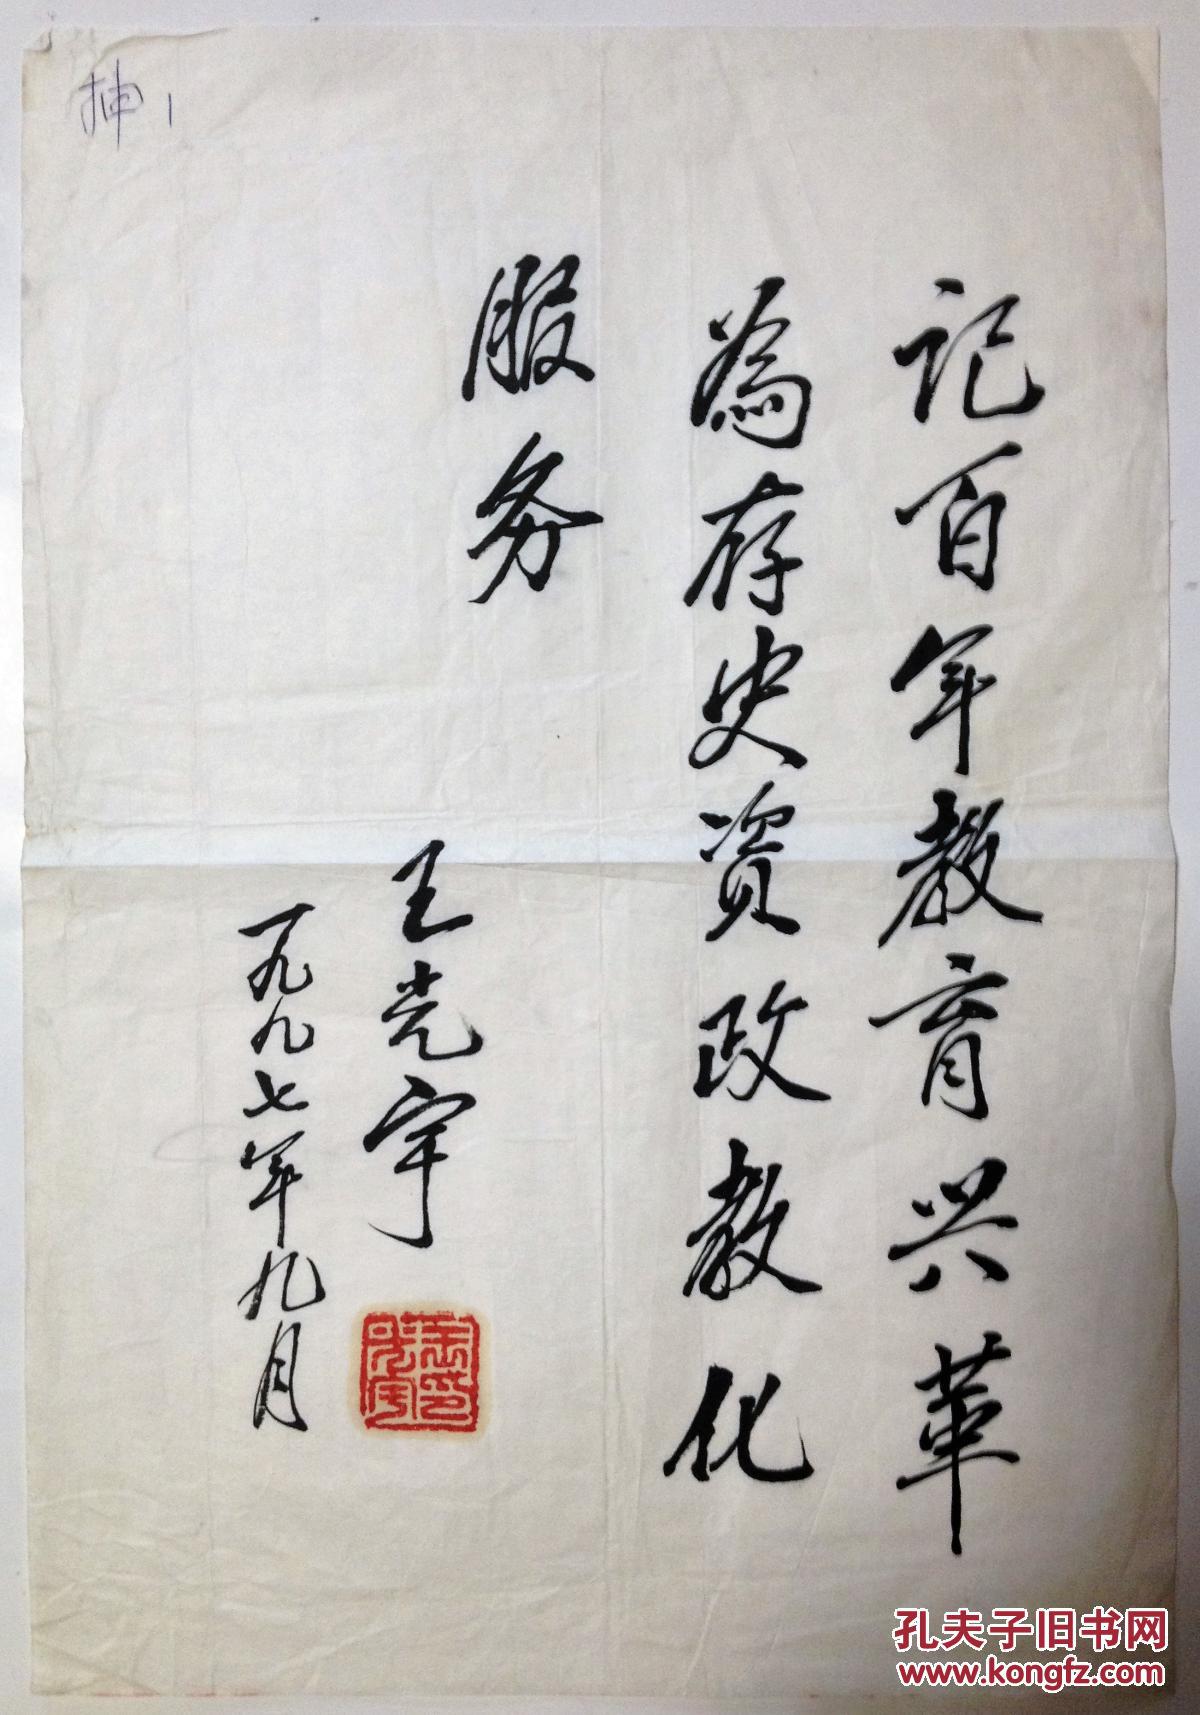 记百年教育兴革
為存史资政教化
服务
王光宇
一九九七年九月
王光宇印
抻1
孔夫子旧书网
www.kongfz.com